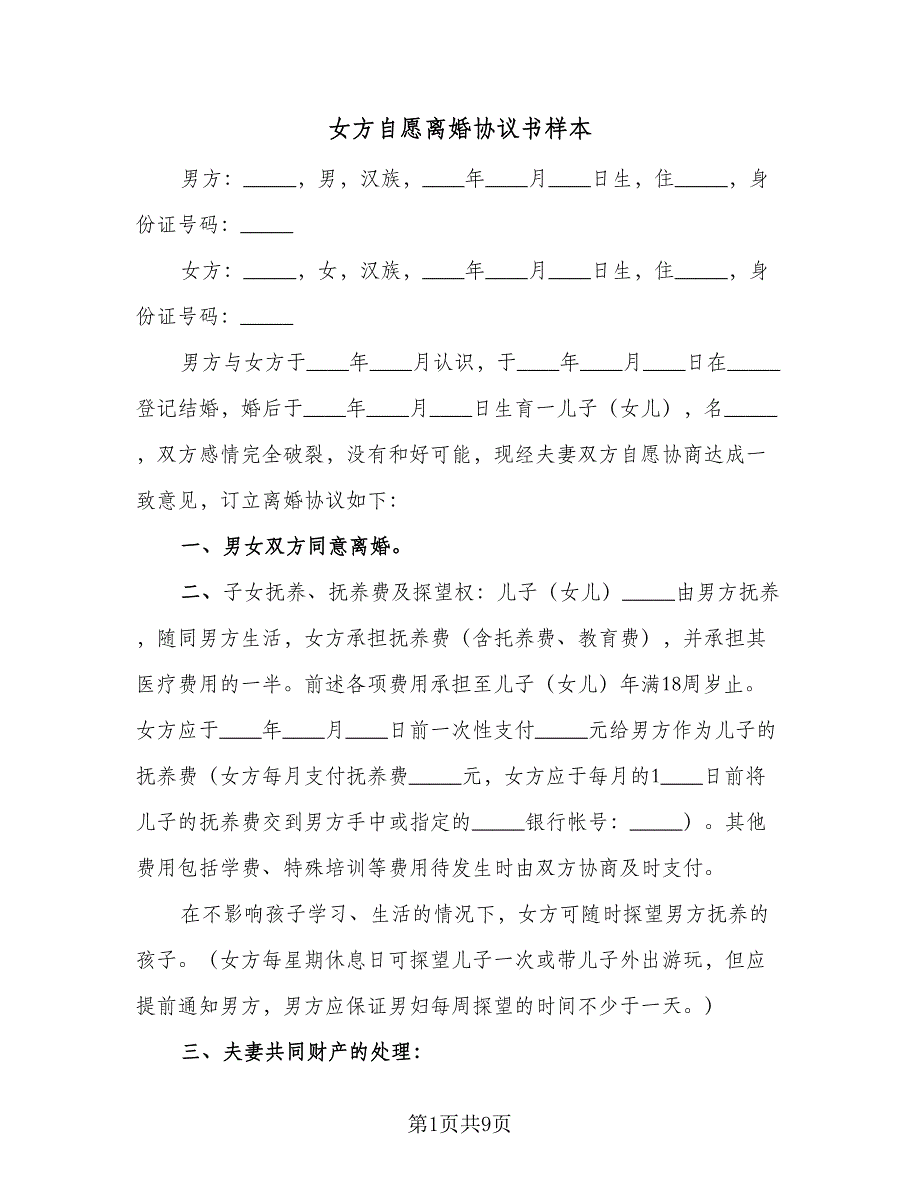 女方自愿离婚协议书样本
男方：_____，男，汉族，____年____月____日生，住_____，身
份证号码：_____
女方：_____，女，汉族，____年____月____日生，住_____，身
份证号码：_____
男方与女方于____年____月认识，于____年____月____日在_____
登记结婚，婚后于____年____月____日生育一儿子（女儿），名_____
，双方感情完全破裂，没有和好可能，现经夫妻双方自愿协商达成一
致意见，订立离婚协议如下：
一、男女双方同意离婚。
二、子女抚养、抚养费及探望权：儿子（女儿）_____由男方抚养
，随同男方生活，女方承担抚养费（含托养费、教育费），并承担其
医疗费用的一半。前述各项费用承担至儿子（女儿）年满18周岁止。
女方应于____年____月____日前一次性支付_____元给男方作为儿子的
抚养费（女方每月支付抚养费_____元，女方应于每月的1____日前将
儿子的抚养费交到男方手中或指定的_____银行帐号：_____）。其他
费用包括学费、特殊培训等费用待发生时由双方协商及时支付。
在不影响孩子学习、生活的情况下，女方可随时探望男方抚养的
孩子。（女方每星期休息日可探望儿子一次或带儿子外出游玩，但应
提前通知男方，男方应保证男妇每周探望的时间不少于一天。）
三、夫妻共同财产的处理：
第1页共9页